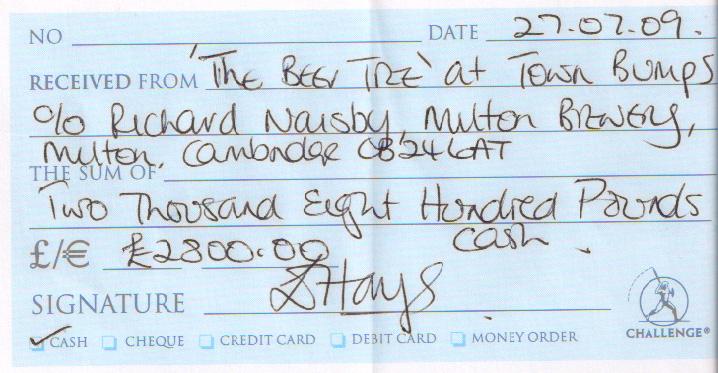 NO DATE 27.07.09.
RECEIVED FROM 'THE BEER TREE' at TOWN BUMPS
c/o Richard Naisby, Milton Brewery,
Milton, Cambridge CB24 6AT
THE SUM OF
Two Thousand Eight Hundred Pounds
£/€ £2800.00 cash.
SIGNATURE Hays
CASH CHEQUE CREDIT CARD DEBIT CARD MONEY ORDER
CHALLENGE®